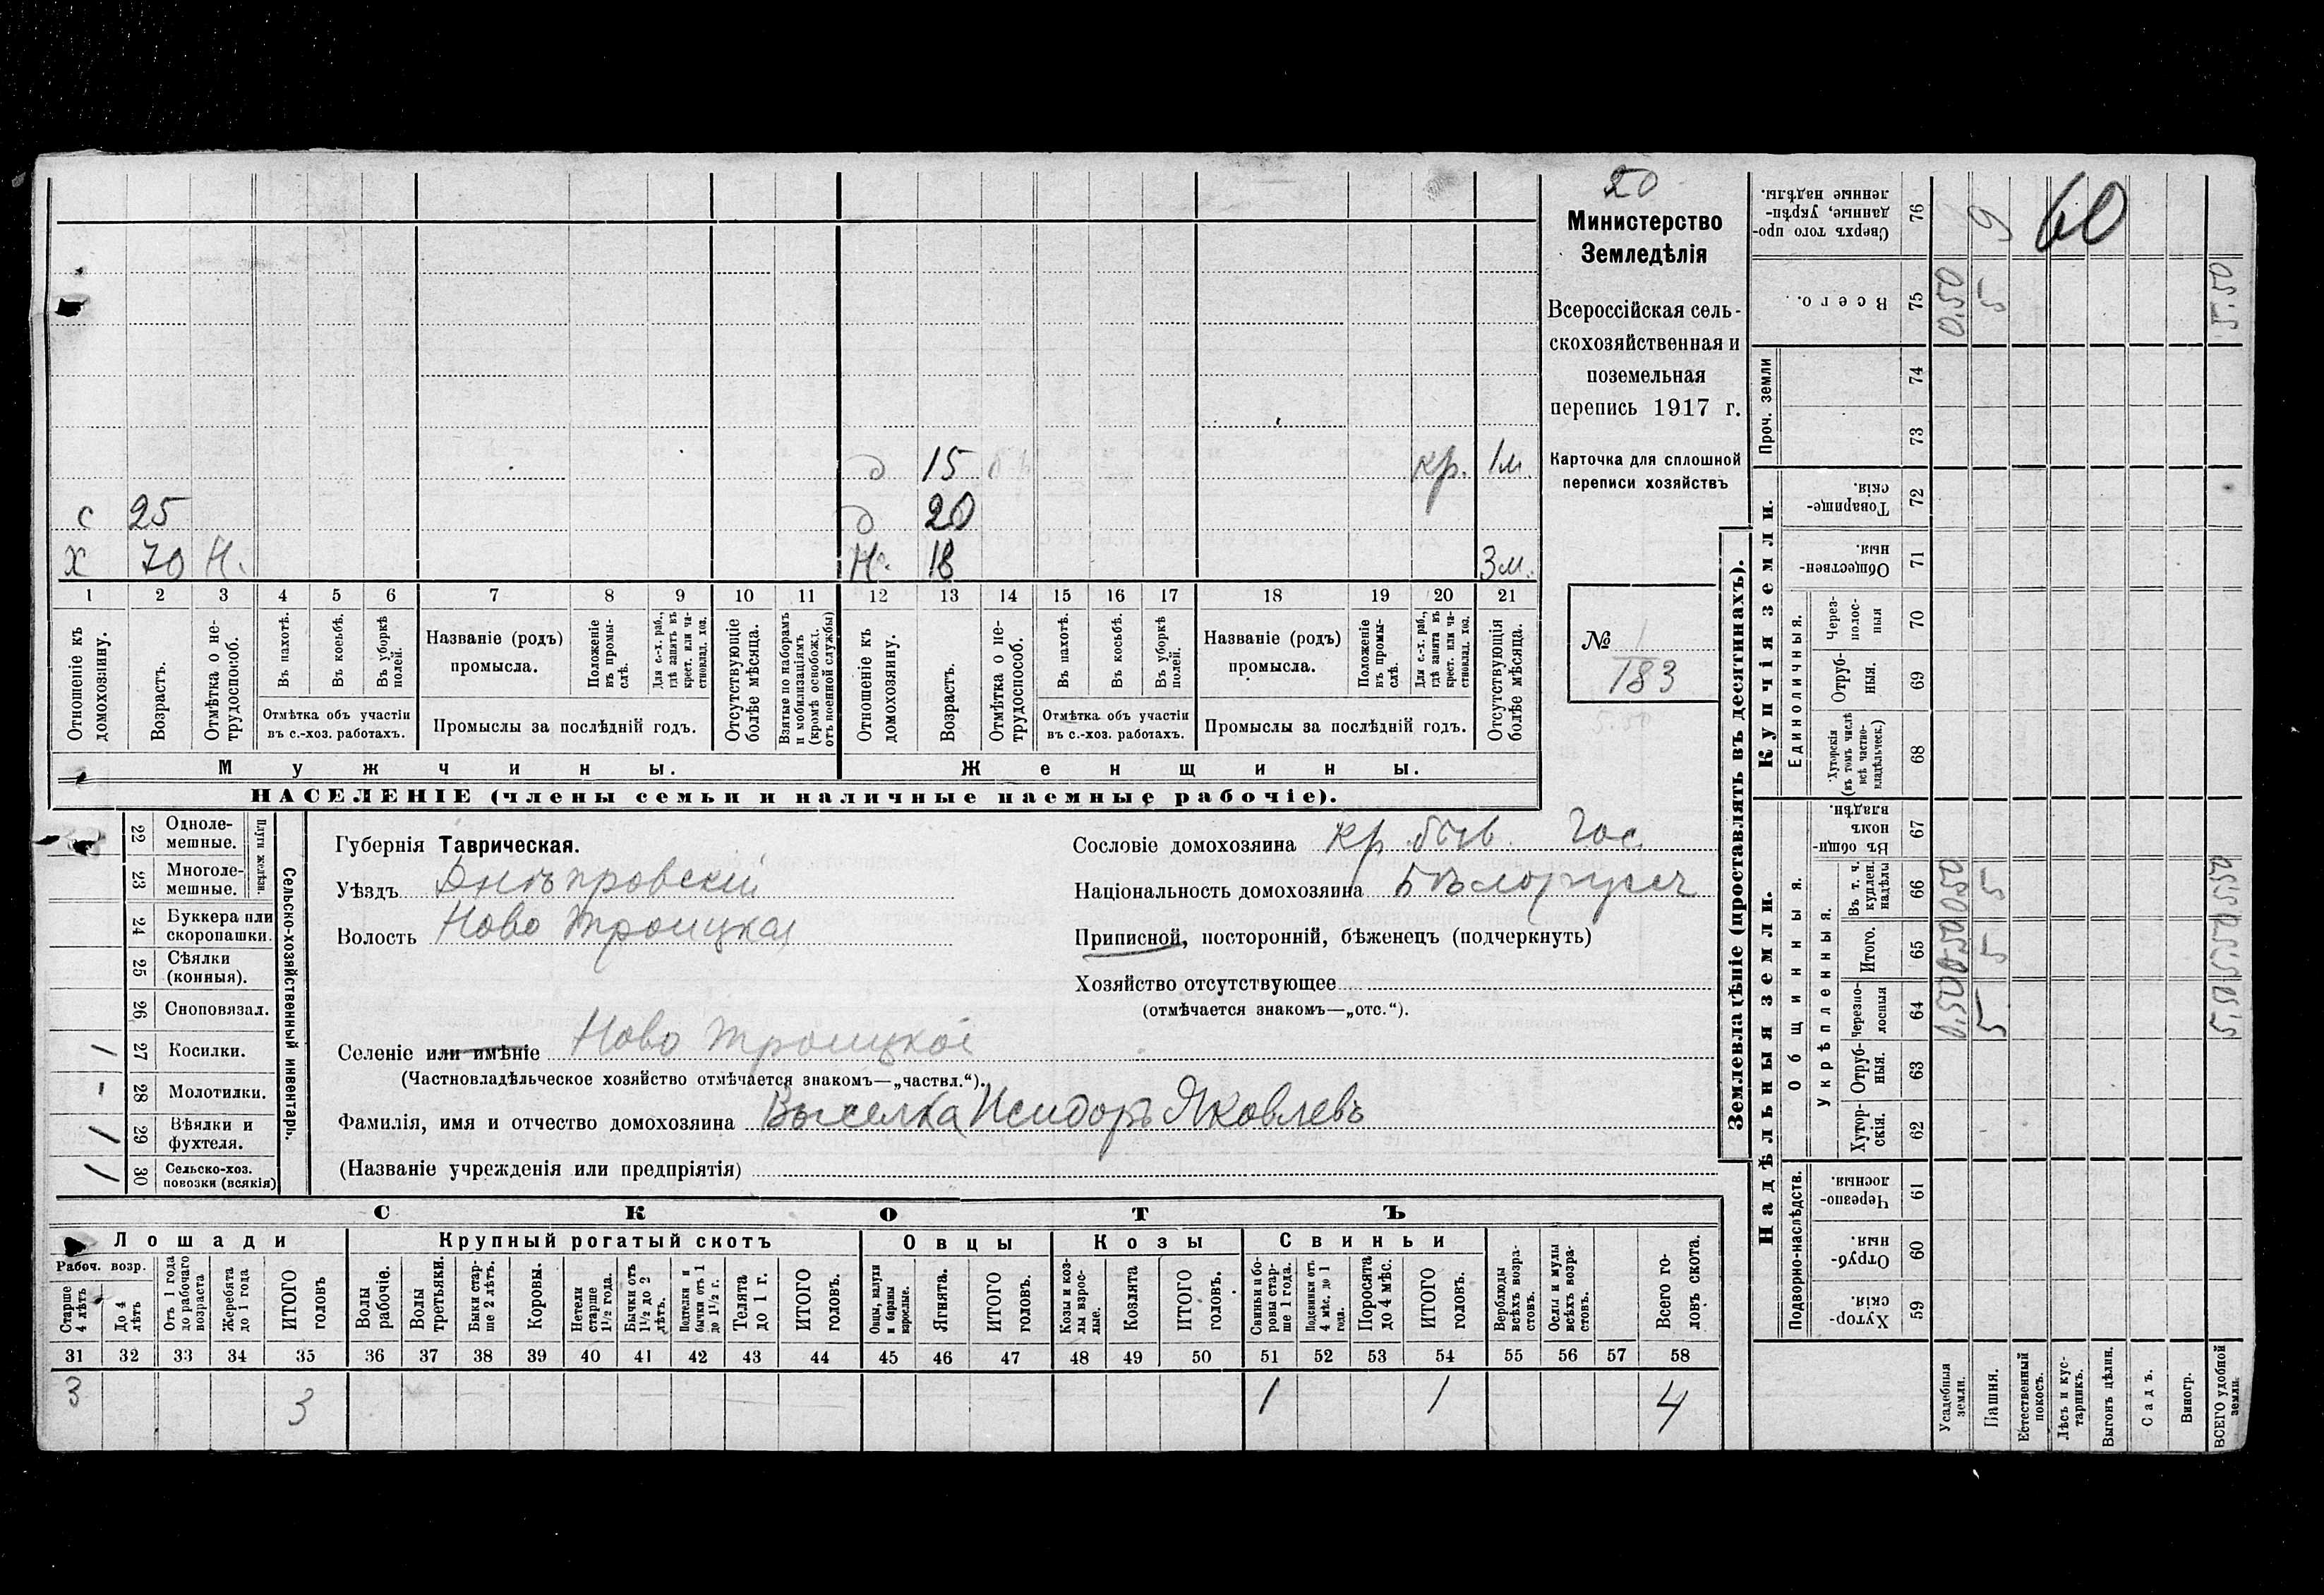 20
Министерство
Земледѣлія
Всероссійская сель-
скохозяйственная и
поземельная
перепись 1917 г.
Карточка для сплошной
переписи хозяйствъ
№ 1
183
5.50
д 15 кр. 1м.
с 25 д 20
х 70 н. н. 18 3м.
1 2 3 4 5 6 7 8 9 10 11 12 13 14 15 16 17 18 19 20 21
Отношеніе къ домохозяину.
Возрастъ.
Отмѣтка о не-трудоспособ.
Въ пахотѣ.
Въ косьбѣ.
Въ уборкѣ полей.
Отмѣтка объ участіи
въ с.-хоз. работахъ.
Названіе (родъ)
промысла.
Положеніе въ промы-слѣ.
Для с.-х. раб., гдѣ занятъ въ крест. или ча-стновлад. хоз.
Промыслы за послѣдній годъ.
Отсутствующіе болѣе мѣсяца.
Взятые по наборамъ и мобилизаціямъ (кромѣ освобожд. отъ военной службы)
Отношеніе къ домохозяину.
Возрастъ.
Отмѣтка о не-трудоспособ.
Въ пахотѣ.
Въ косьбѣ.
Въ уборкѣ полей.
Отмѣтка объ участіи
въ с.-хоз. работахъ.
Названіе (родъ)
промысла.
Положеніе въ промы-слѣ.
Для с.-х. раб., гдѣ занята въ крест. или ча-стновлад. хоз.
Промыслы за послѣдній годъ.
Отсутствующія болѣе мѣсяца.
Мужчины.
Женщины.
НАСЕЛЕНІЕ (члены семьи и наличные наемные рабочіе).
Сельско-хозяйственный инвентарь.
Плуги желѣзн.
22 Одноле-мешные.
23 Многоле-мешные.
24 Буккера или скоропашки.
25 Сѣялки (конныя).
26 Сноповязал.
1 27 Косилки.
- 28 Молотилки.
1 29 Вѣялки и фухтеля.
1 30 Сельско-хоз. повозки (всякія)
Губернія Таврическая.
Уѣздъ Днѣпровскій
Волость Ново Троицкая
Селеніе или имѣніе Ново Троицкое
(Частновладѣльческое хозяйство отмѣчается знакомъ—„частвл.“).
Фамилія, имя и отчество домохозяина Исидоръ Яковлевъ
(Названіе учрежденія или предпріятія)
Сословіе домохозяина кр. быв. гос.
Національность домохозяина Бѣлоруссъ
Приписной, посторонній, бѣженецъ (подчеркнуть)
Хозяйство отсутствующее
(отмѣчается знакомъ—„отс.“).
СКОТЪ
Лошади
Крупный рогатый скотъ
Овцы
Козы
Свиньи
Рабоч. возр.
Старше 4 лѣтъ
До 4 лѣтъ
Отъ 1 года до рабочаго возраста
Жеребята до 1 года
ИТОГО головъ
Волы рабочіе.
Волы третьяки.
Быки стар-ше 2 лѣтъ.
Коровы.
Нетели старше 1½ года.
Бычки отъ 1½ до 2 лѣтъ.
Подтелки и бычки отъ 1 до 1½ г.
Телята до 1 г.
ИТОГО головъ.
Овцы, валухи и бараны взрослые.
Ягнята.
ИТОГО головъ.
Козы и коз-лы взрос-лые.
Козлята
ИТОГО головъ.
Свиньи и бо-ровы стар-ше 1 года.
Подсвинки отъ 4 мѣс. до 1 года.
Поросята до 4 мѣс.
ИТОГО головъ.
Верблюды всѣхъ возра-стовъ.
Ослы и мулы всѣхъ возра-стовъ.
Всего го-ловъ скота.
31 32 33 34 35 36 37 38 39 40 41 42 43 44 45 46 47 48 49 50 51 52 53 54 55 56 57 58
3 3 1 1 4
Землевладѣніе (проставлять въ десятинахъ).
Надѣльныя земли.
Купчія земли.
Проч. земли
Подворно-наслѣдств.
Общинныя.
Укрѣпленныя.
Единоличныя.
Хутор-скія. 59
Отруб-ныя. 60
Черезпо-лосныя. 61
Хутор-скія. 62
Отруб-ныя. 63
Черезпо-лосныя 64
Итого. 65
Въ т. ч. куплен. надѣлы 66
Въ общи-номъ владѣн. 67
Хуторскія (въ томъ числѣ всѣ частно-владѣльческ.) 68
Отруб-ныя. 69
Через-полос-ныя 70
Обществен-ныя. 71
Товарище-скія. 72
73
74
Всего. 75
Сверхъ того про-данные, укрѣп-ленные надѣлы. 76
Усадебныя земли. 0.50 0.50 0.50 0.50
Пашня. 5 5 5 5 9
Естественный покосъ.
Лѣсъ и кус-тарникъ. 60
Выгонъ цѣлин.
Садъ.
Виногр.
ВСЕГО удобной земли. 5.50 5.50 5.50 5.50